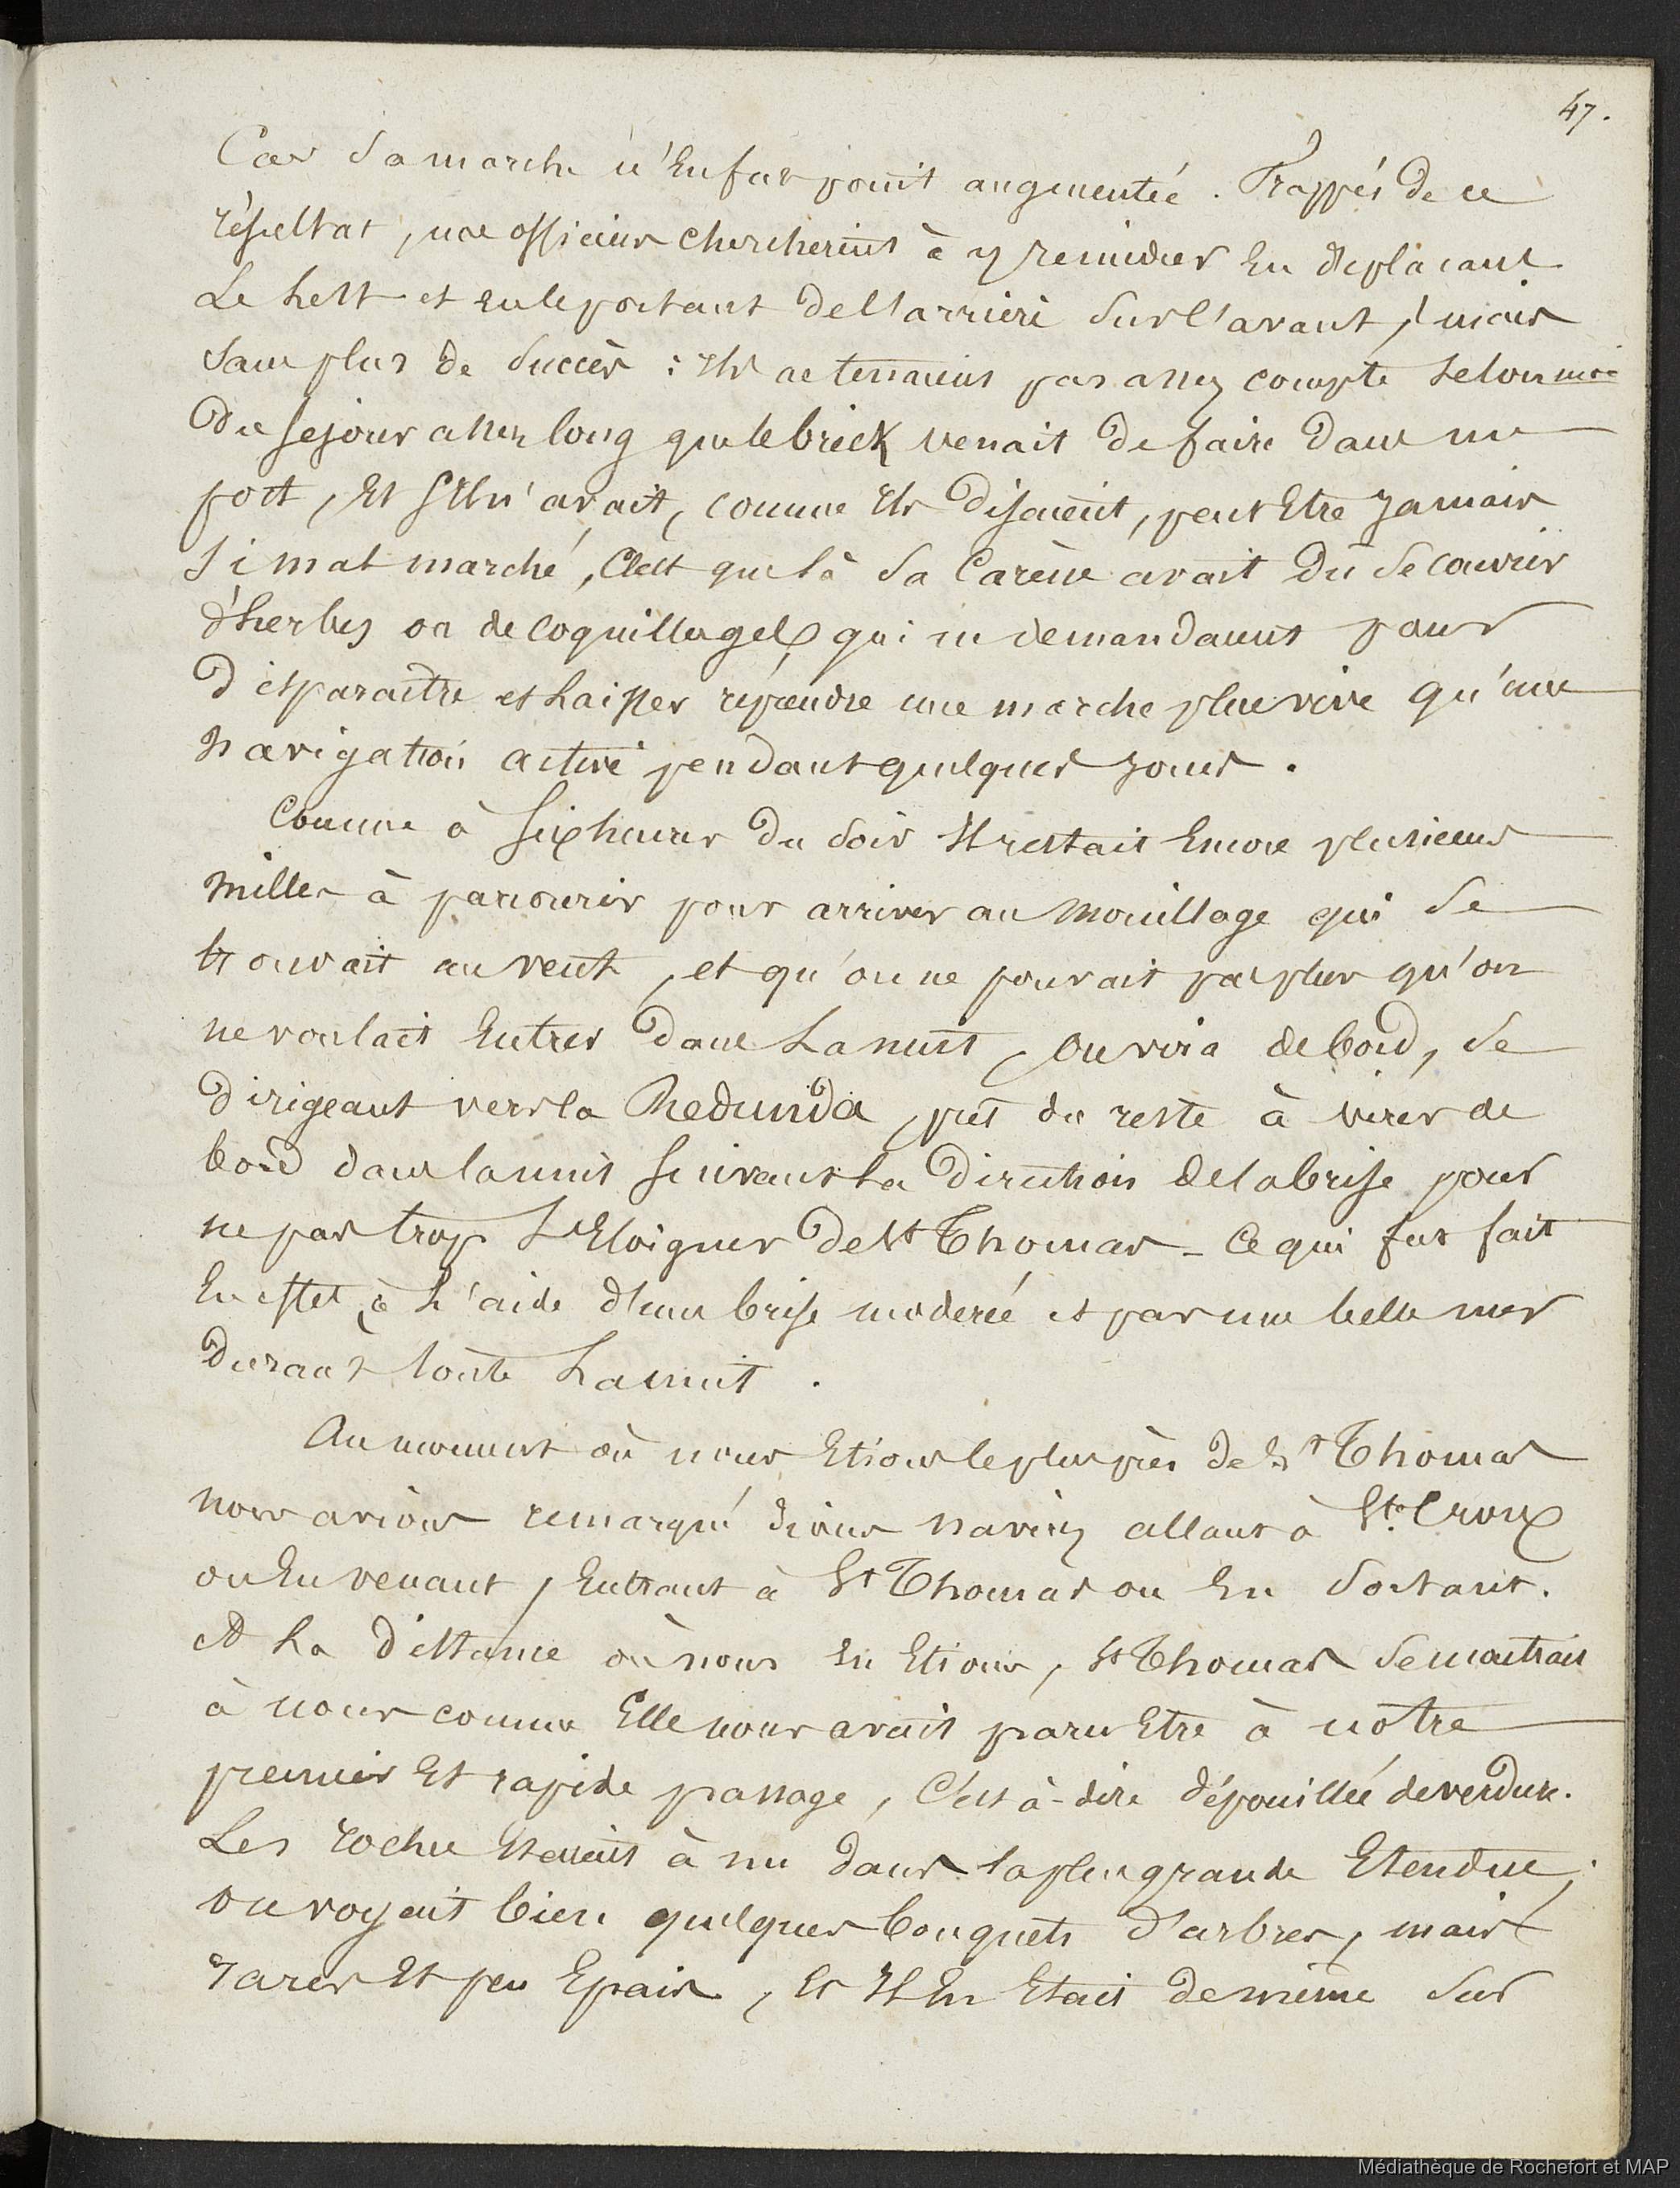 47.
Car sa marche n'en fut point augmentée. Frappés de ce
résultat, nos officiers cherchèrent à y remédier en déplacant
le lest et en le portant de l'arrière sur l'avant, mais
sans plus de succès : ils ne tenaient pas assez compte selon moi
du séjour assez long que le brick venait de faire dans un
port, et s'il n'avait, comme ils disaient, peut être jamais
si mal marché, c'est que là sa carène avait dû se couvrir
d'herbes ou de coquillages, qui ne demandaient pour
disparaître et laisser reprendre une marche plus vive qu'une
navigation active pendant quelques jours.
Comme à six heures du soir il restait encore plusieurs
milles à parcourir pour arriver au mouillage qui se
trouvait au vent, et qu'on ne pouvait pas plus qu'on
ne voulait entrer dans la nuit, on vira de bord, se
dirigeant vers la Redunda, prêt du reste à virer de
bord dans la nuit suivant la direction de la brise pour
ne pas trop s'éloigner de St Thomas - ce qui fut fait
en effet, à l'aide d'une brise modérée et par une belle mer
durant toute la nuit.
Au moment où nous étions le plus près de St Thomas
nous avions remarqué divers navires allant à Ste Croix
ou en venant, entrant à St Thomas ou en sortant.
A la distance où nous en étions, St Thomas se montrait
à nous comme elle nous avait paru être à notre
premier et rapide passage, c'est à-dire dépouillée de verdure.
Les roches étaient à nu dans la plus grande étendue;
on voyait bien quelques bouquets d'arbres, mais
rares et peu épais, et il en était de même sur
Médiathèque de Rochefort et MAP